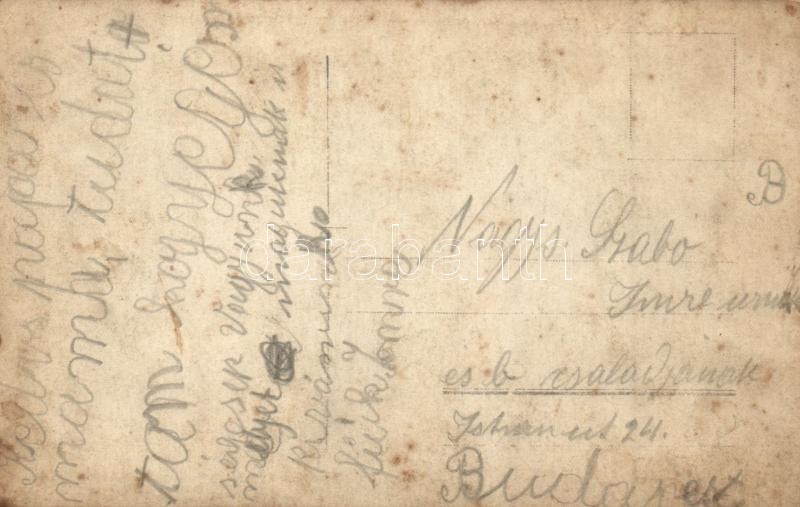 kedves papa és
mama, tudat
tam hogy egész
ségesek vagyunk
melyet maguknak is
kívánunk
fiuk Imre
B
Nagys. Szabo
Imre urnak
es b. családjának
Istvan ut 24.
Budapest
darabanth